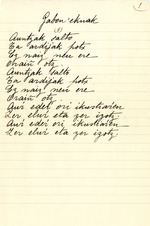 Gabon eknak
1
(1)
Auntzak Salto
Ta ardijak poto
Ez naiz neu ere
Orain otz
Auntzak Salto
Ta ardijak poto
Ez naiz neu ere
Orain otz
Auv eder ori ikustiaren
Zer elur eta zer izotz
Auv eder ori ikustiaren
Zer elur eta zer izotz.